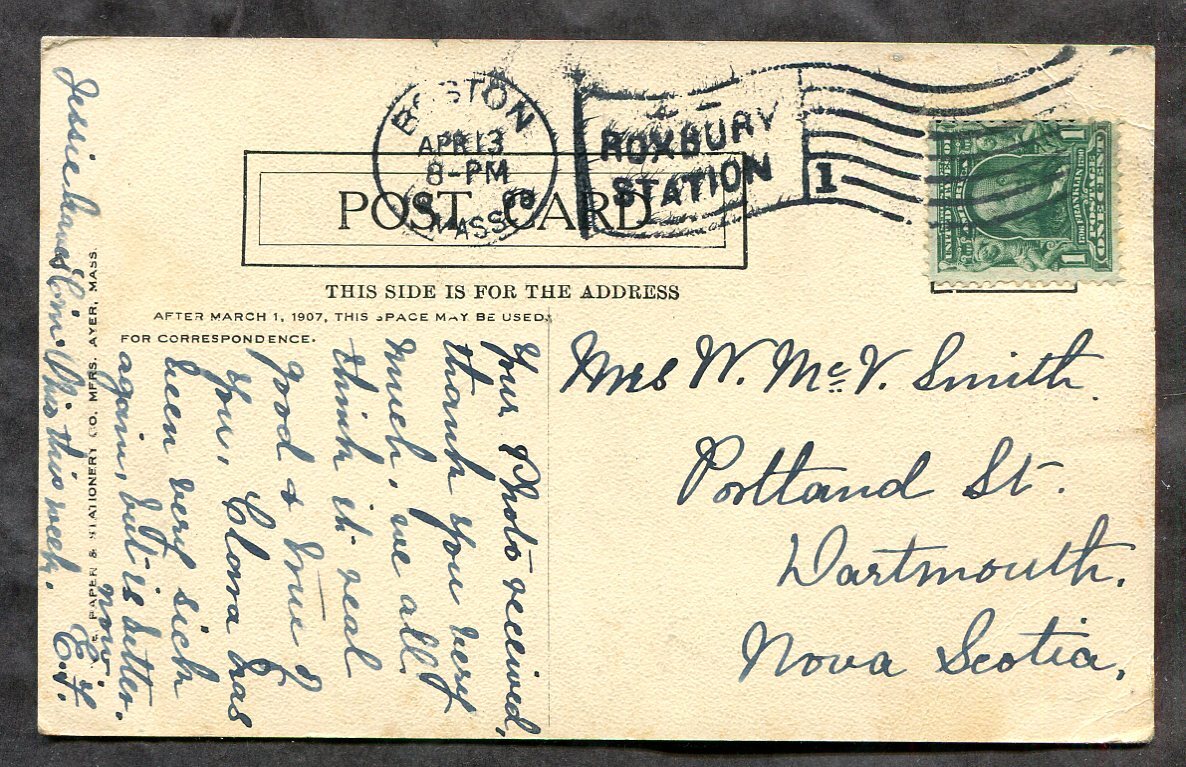 BOSTON
APR 13
8-PM
08
MASS.
ROXBURY
STATION
1
POST CARD
THIS SIDE IS FOR THE ADDRESS
AFTER MARCH 1, 1907, THIS SPACE MAY BE USED
FOR CORRESPONDENCE.
UNITED STATES OF
1706 FRANKLIN 1790
ONE CENT
1 1
Mrs W. McV. Smith
Portland St.
Dartmouth,
Nova Scotia,
Your Photo received,
thank you very
much, we all
think it real
good & true of
you, Clara has
been very sick
again, but is better
now.
E. F.
Jessie this week.
PAPER & STATIONERY CO. MFRS. AYER, MASS.